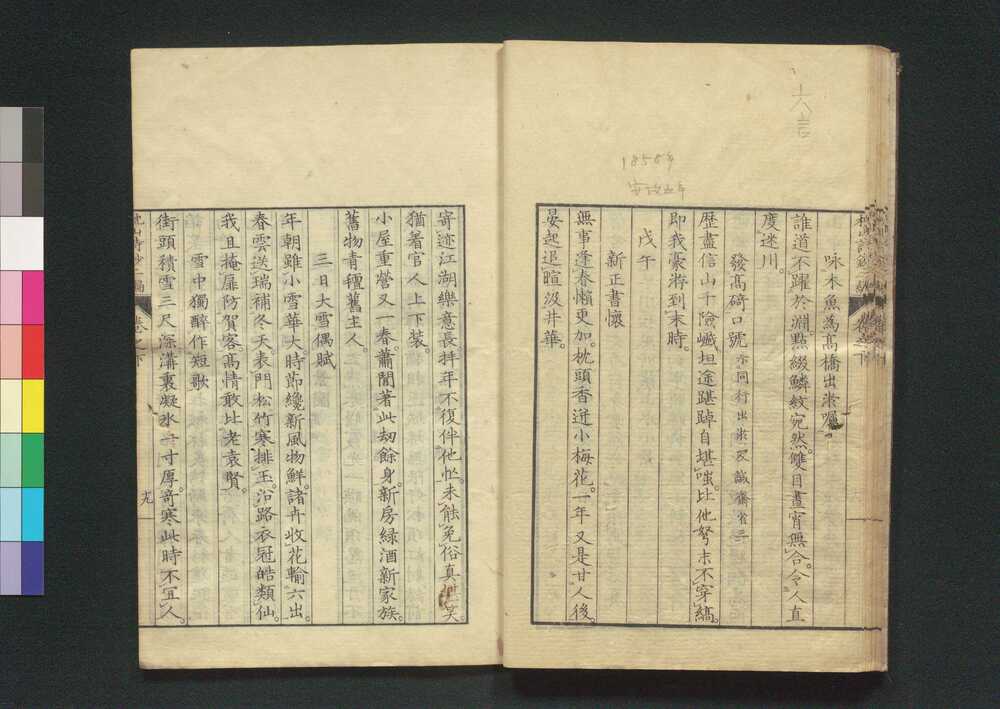 六言
1858年
安政五年
咏木魚為高橋出米囑
誰道不躍於淵。點綴鱗紋宛然。雙目晝宵無合。令人直
度迷川。
發髙碕口號
歷盡信山千險巇。坦途踸踔自堪嗤。比他弩末不穿縞。
即我豪游到末時。
戊午
新正書懷
無事逢春懶更加。枕頭香迸小梅花。一年又是廿人後。
晏起追暄汲井華。
寄迹江湖樂意長。拜年不復伴他忙。未蝕免俗真
猶着官人上下裝。
小屋重營又一春。蕭閒著此劫餘身。新房綠酒新家族。
舊物青氊舊主人。
三日大雪偶賦
年朝雖小雪華大。時節纔新風物鮮。諸卉收花輸六出。
春雲送瑞補冬天。表門松竹寒排玉。沿路衣冠皓類仙。
我且掩扉防賀客。髙情敢比老袁賢。
雪中獨醉作短歌
街頭積雪三尺深。溝裏凝氷一寸厚。奇寒此時不宜人。